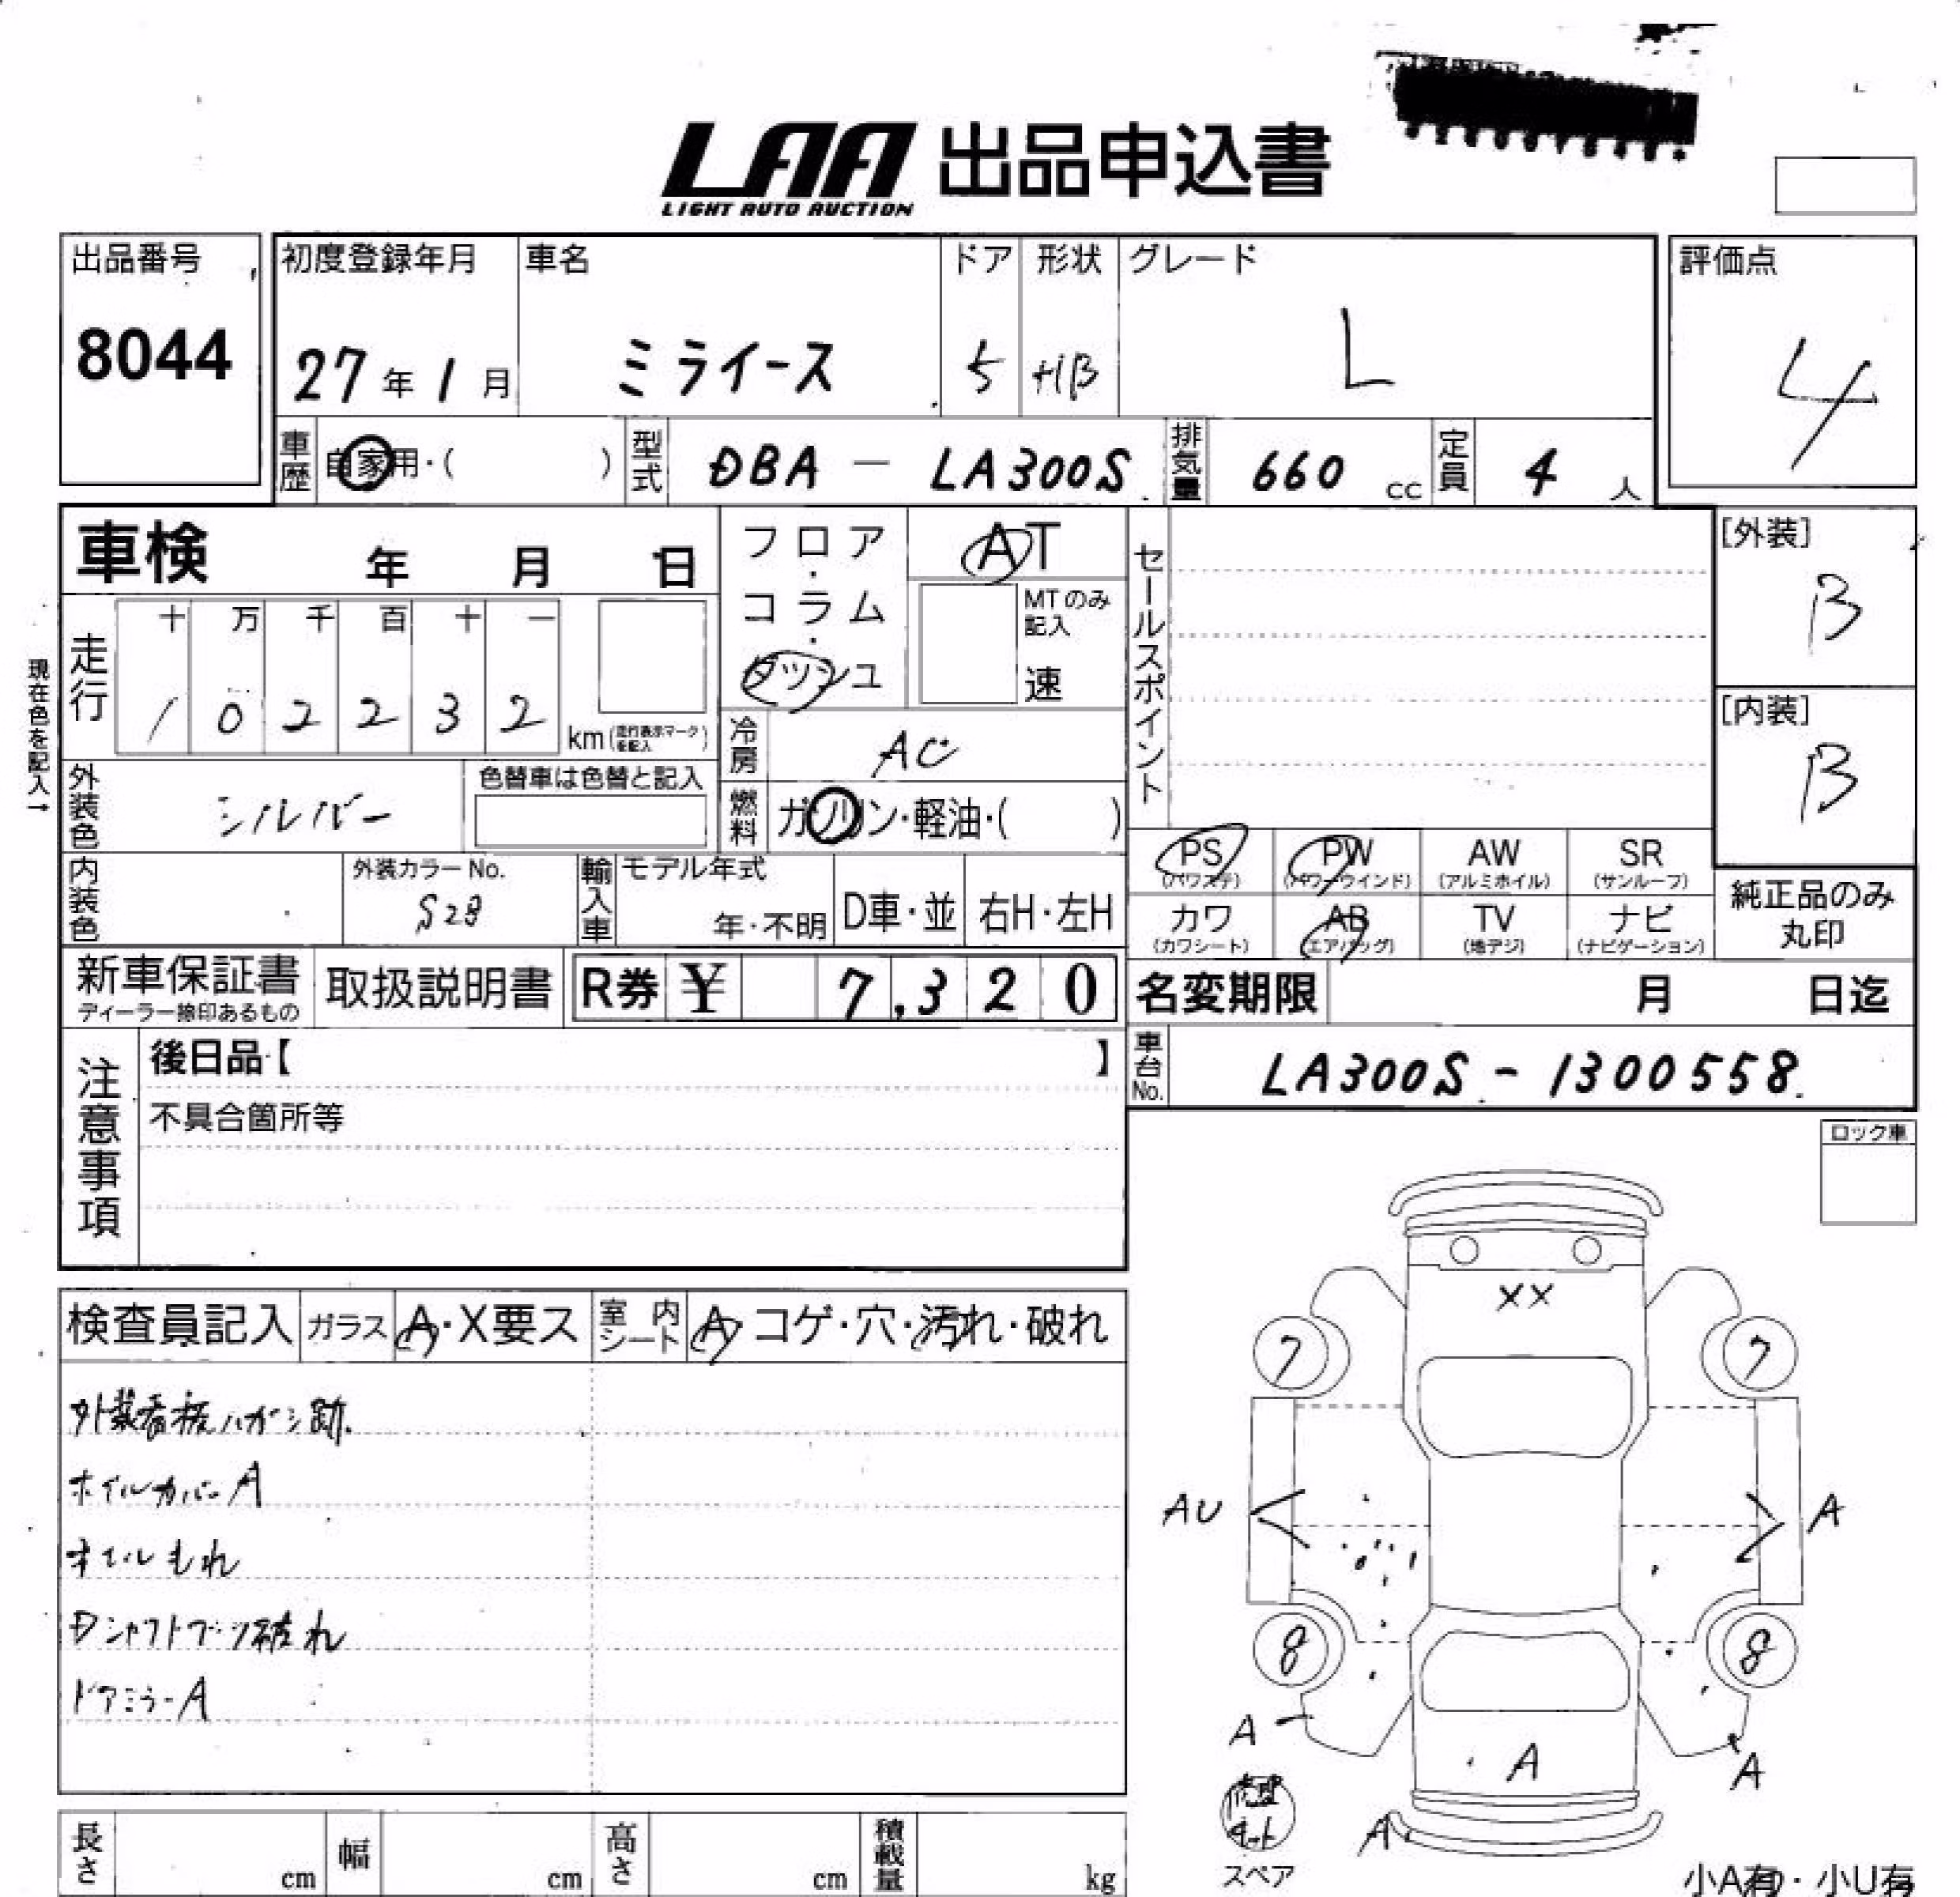 LAA 出品申込書
LIGHT AUTO AUCTION
出品番号
8044
初度登録年月
27年1月
車名
ミライース
ドア
5
形状
HB
グレード
L
評価点
4
車歴
自家用・( )
型式
DBA - LA300S
排気量
660 cc
定員
4 人
車検 年 月 日
フロア・コラム・ダッシュ
AT
MTのみ記入
速
セールスポイント
[外装]
B
[内装]
B
現在色を記入→
走行
十 万 千 百 十 一
1 0 2 2 3 2
km(走行表示マークを記入)
冷房
AC
外装色
シルバー
色替車は色替と記入
燃料
ガソリン・軽油・( )
PS
(パワステ)
PW
(パワーウインド)
AW
(アルミホイル)
SR
(サンルーフ)
内装色
外装カラーNo.
S28
輸入車
モデル年式
年・不明
D車・並
右H・左H
カワ
(カワシート)
AB
(エアバッグ)
TV
(地デジ)
ナビ
(ナビゲーション)
純正品のみ
丸印
新車保証書
ディーラー捺印あるもの
取扱説明書
R券 ¥ 7,320
名変期限 月 日迄
注意事項
後日品【 】
不具合箇所等
車台No.
LA300S - 1300558
ロック車
検査員記入
ガラス
A・X要ス
室内シート
A・コゲ・穴・汚れ・破れ
外装看板ハガシ跡
ホイルカバーA
オイルもれ
Dシャフトブーツ破れ
ドアミラーA
XX
7
7
AU
A
8
8
A
A
A
A
修理キット
スペア
小A有・小U有
長さ cm
幅 cm
高さ cm
積載量 kg